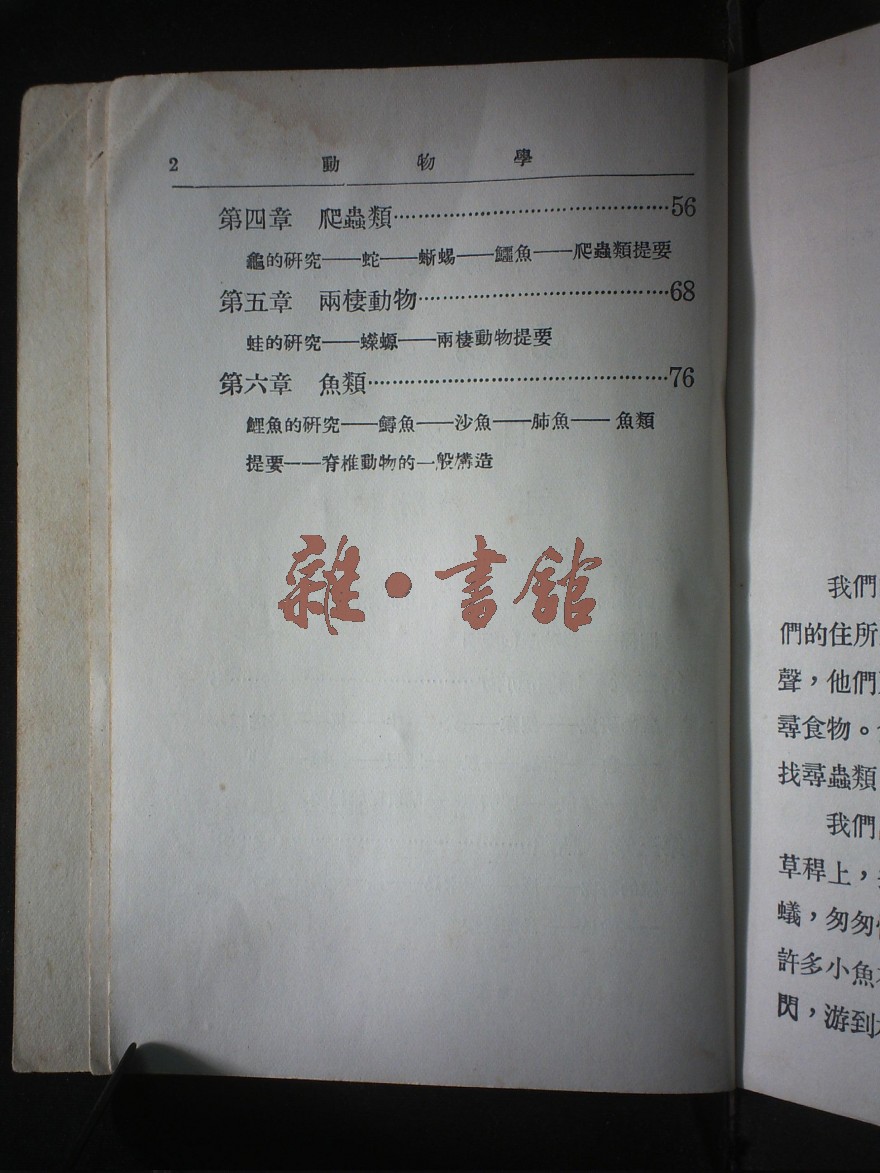 2 動物學
第四章 爬蟲類…………………………………56
龜的研究——蛇——蜥蜴——鱷魚——爬蟲類提要
第五章 兩棲動物………………………………68
蛙的研究——蠑螈——兩棲動物提要
第六章 魚類……………………………………76
鯉魚的研究——鱘魚——沙魚——肺魚——魚類
提要——脊椎動物的一般構造
雜•書館
我們
們的住所
聲，他們
尋食物。
找尋蟲類
我們
草稈上，
蟻，匆匆
許多小魚
閃，游到